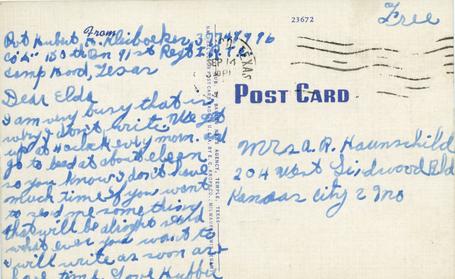 From
Pvt Hubert
Camp Hood, Texas
Dear Elda
I am very busy that is
why I don't write. We get
up at 4 oclock every morn. and
go to bed at about eleven
so you know I don't have
much time. If you want
to send me something
that will be alright send
what ever you want to
I will write as soon as
have time. Love Hubbie
23672
Free
TEXAS
SEP 14
POST CARD
Mrs A. R. Haunschild
204 West Lindwood Blvd
Kansas City 2 Mo